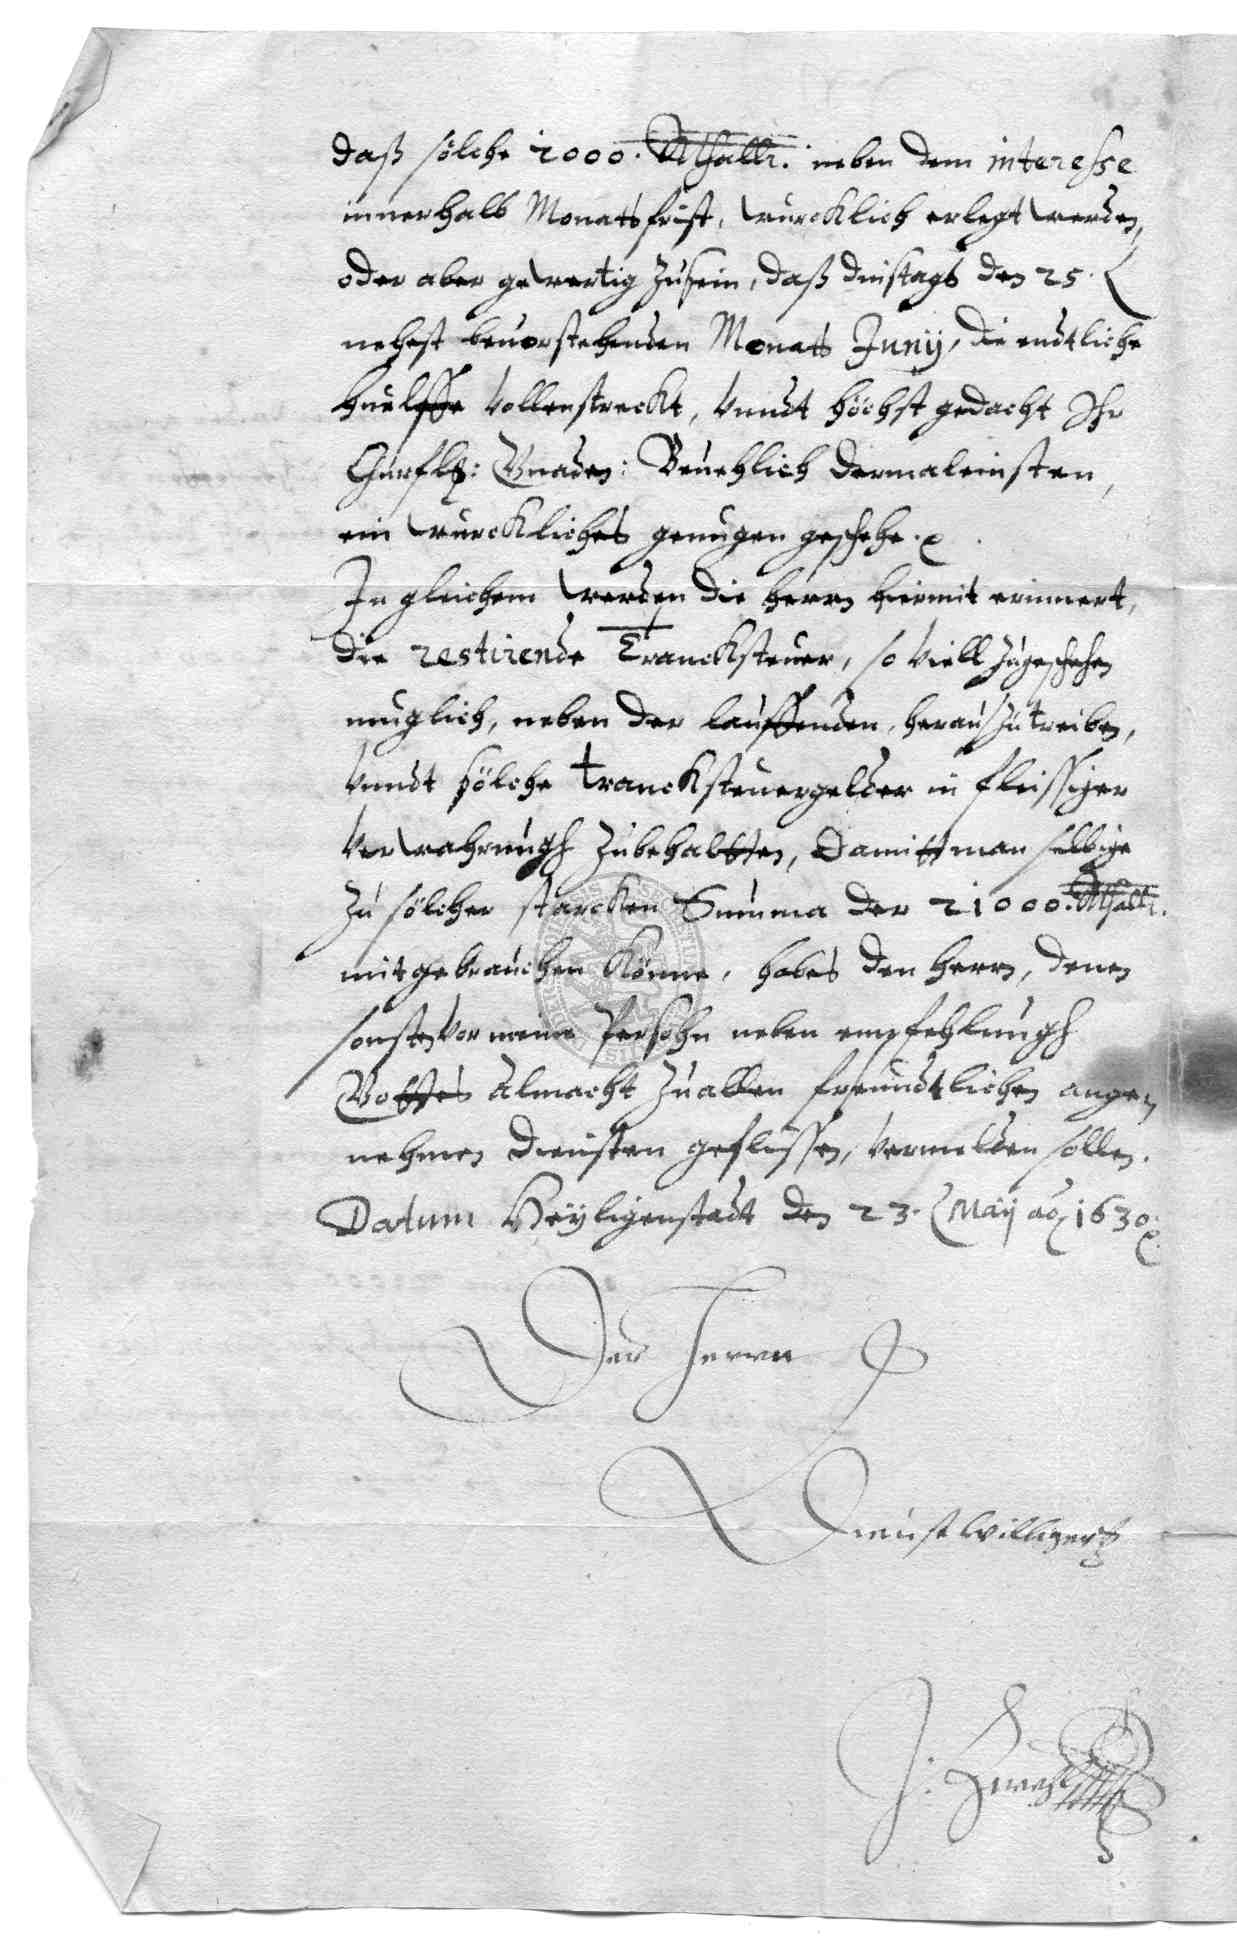 daß sölche 2000. Rthallr. neben dem interesse
innerhalb Monatsfrist, wurcklich erlegt werden,
oder aber gewertig zusein, daß dinstags den 25.
nehest beuorstehenden Monats Junÿ, die endtliche
huelffe vollenstreckt, vnndt höchst gedacht Ihr
Churfl: Gnaden: Beuehlich dermaleinsten,
ein wurckliches genugen geschehe.
In gleichem werden die herrn hiermit erinnert,
die restirende Tranksteuer, so viell zugeschehen
muglich, neben der lauffenden, heraußzutreiben,
vnndt sölche tranksteuergelder in fleissiger
verwahrnugh zubehaltten, damitt man selbige
zu sölcher starcken Summa der 21000. Rthallr.
mit gebrauchen könne, habes den herrn, denen
sonsten vor meine Persohn neben empfehlungh
Gottes almacht zu allen freundtlichen ange
nehmen diensten geflissen, vermelden sollen.
Datum Heÿligenstadt den 23. Maÿ ao 1630
Der Herrn
Dienstwilliger
J: